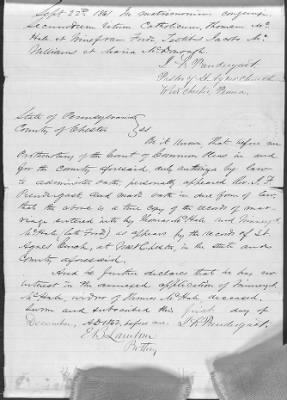 Sept 22nd 1861 In matrimonium conjunxi
secundum ritum Catholicum, Thomam Mc
Hale et Winefram Ford. Testibus Jacobo Mc
Williams et Maria McDonough.
J. F. Prendergast
Pastor St. Agnes Church
West Chester Penna.
State of Pennsylvania
County of Chester } SS
Be it Known, that before me
Prothonotary of the Court of Common Pleas in and
for the County aforesaid, duly authorized by law
to administer oaths, personally appeared Rev. J. F.
Prendergast and made oath in due form of law,
that the above is a true copy of the record of mar-
riage entered into by Thomas McHale and
McHale, (late Ford) as appears by the records of St.
Agnes Church, at West Chester, in the state and
County aforesaid.
And he further declares that he has no
interest in the annexed application of
McHale, widow of Thomas McHale deceased.
Sworn and subscribed this first day of
December, A.D. 1863, before me. J. F. Prendergast.